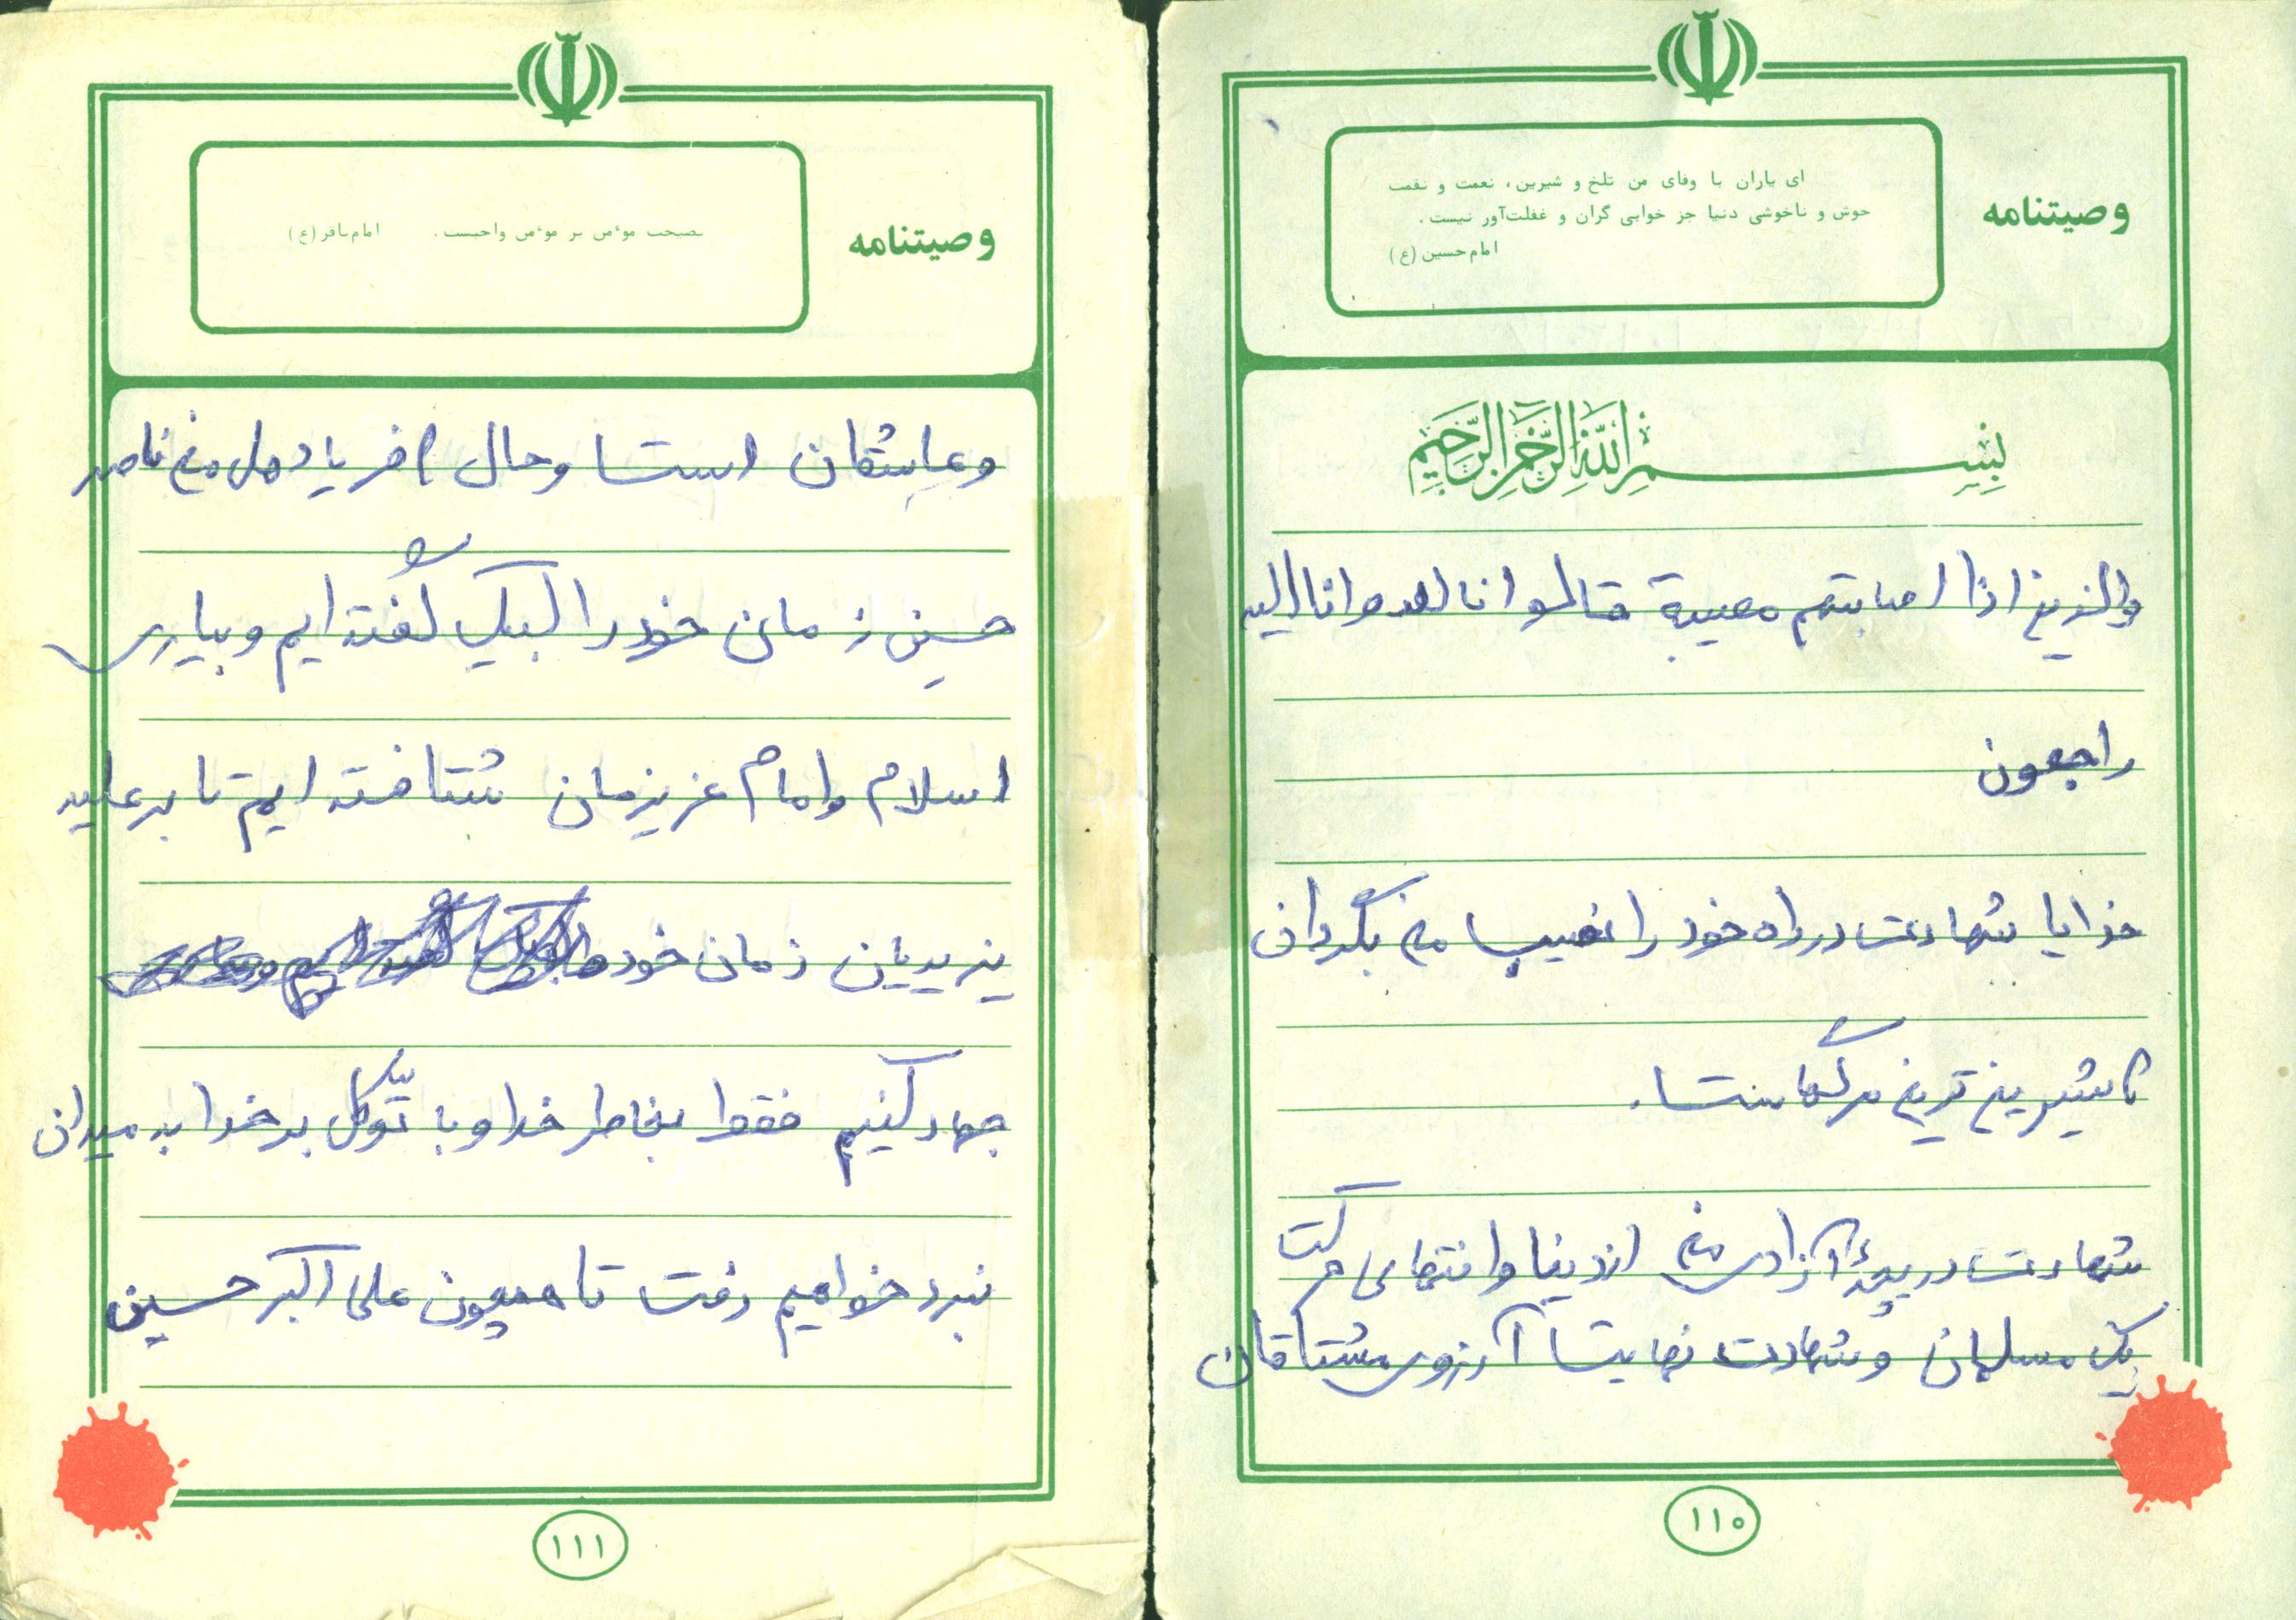 وصیتنامه
ای یاران با وفای من تلخ و شیرین، نعمت و نقمت
خوش و ناخوشی دنیا جز خوابی گران و غفلت‌آور نیست.
امام حسین (ع)
بِسْمِ اللَّهِ الرَّحْمٰنِ الرَّحِيمِ
والذین اذا اصابتهم مصیبة قالوا انا لله و انا الیه
راجعون
خدایا شهادت در راه خود را نصیب من بگردان
که شیرین ترین مرگهاست.
شهادت دریچهٔ آزادی من از دنیا و انتهای حرکت
یک مسلمان و شهادت نهایت آرزوی مشتاقان
۱۱۰
وصیتنامه
نصیحت موٴمن بر موٴمن واجبست. امام باقر (ع)
و عاشقان است و حال فریاد هل من ناصر
حسین زمان خود را لبیک گفته ایم و بیاری
اسلام و امام عزیزمان شتافته ایم تا بر علیه
یزیدیان زمان خود
جهاد کنیم فقط بخاطر خدا و با توّکل بر خدا به میدان
نبرد خواهیم رفت تا همچون علی اکبر حسین
۱۱۱